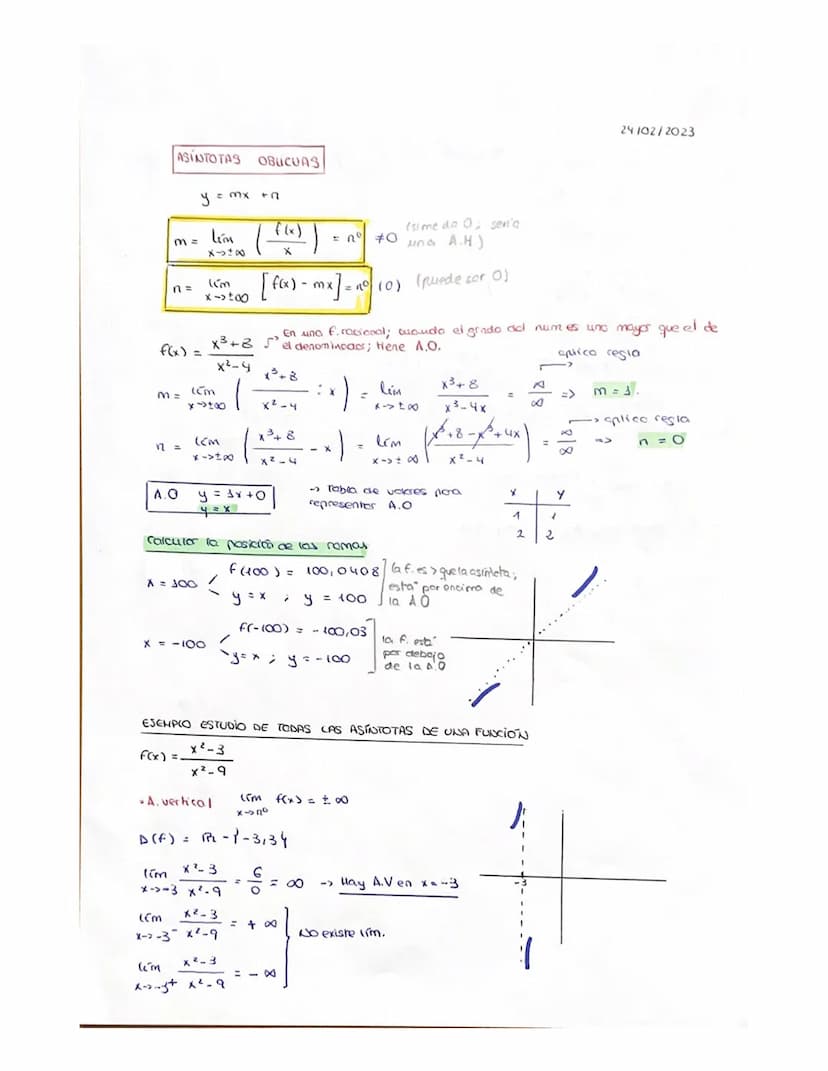 24/02/2023
ASÍNTOTAS OBLICUAS
y = mx + n
m = lím x→±∞ (f(x)/x) = nº ≠0 (si me da 0, sería una A.H)
n = lím x→±∞ [f(x) - mx] = nº (0) (puede ser 0)
En una f. racional; cuando el grado del num es uno mayor que el de
el denominador; tiene A.O.
f(x) = (x³+8)/(x²-4)
aplico regla
m = lím x→±∞ ((x³+8)/(x²-4) : x) = lím x→±∞ (x³+8)/(x³-4x) = ∞/∞ => m = 1.
aplico regla
n = lím x→±∞ ((x³+8)/(x²-4) - x) = lím x→±∞ ((x³+8-x³+4x)/(x²-4)) = ∞/∞ => n = 0
A.O y = 1x+0
y = x
→ Tabla de valores para
representar A.O
x | y
1 | 1
2 | 2
Calcular la posición de las ramas
x = 100
f(100) = 100,0408
y = x ; y = 100
la f. es > que la asíntota;
está por encima de
la AO
x = -100
f(-100) = -100,03
y = x ; y = -100
la f. está
por debajo
de la A.O
EJEMPLO ESTUDIO DE TODAS LAS ASÍNTOTAS DE UNA FUNCIÓN
f(x) = (x²-3)/(x²-9)
• A. vertical lím x→nº f(x) = ± ∞
D(f) = R - {-3,3}
lím x→-3 (x²-3)/(x²-9) = 6/0 = ∞ → Hay A.V en x = -3
lím x→-3⁻ (x²-3)/(x²-9) = + ∞
No existe lím.
lím x→-3⁺ (x²-3)/(x²-9) = - ∞
-3